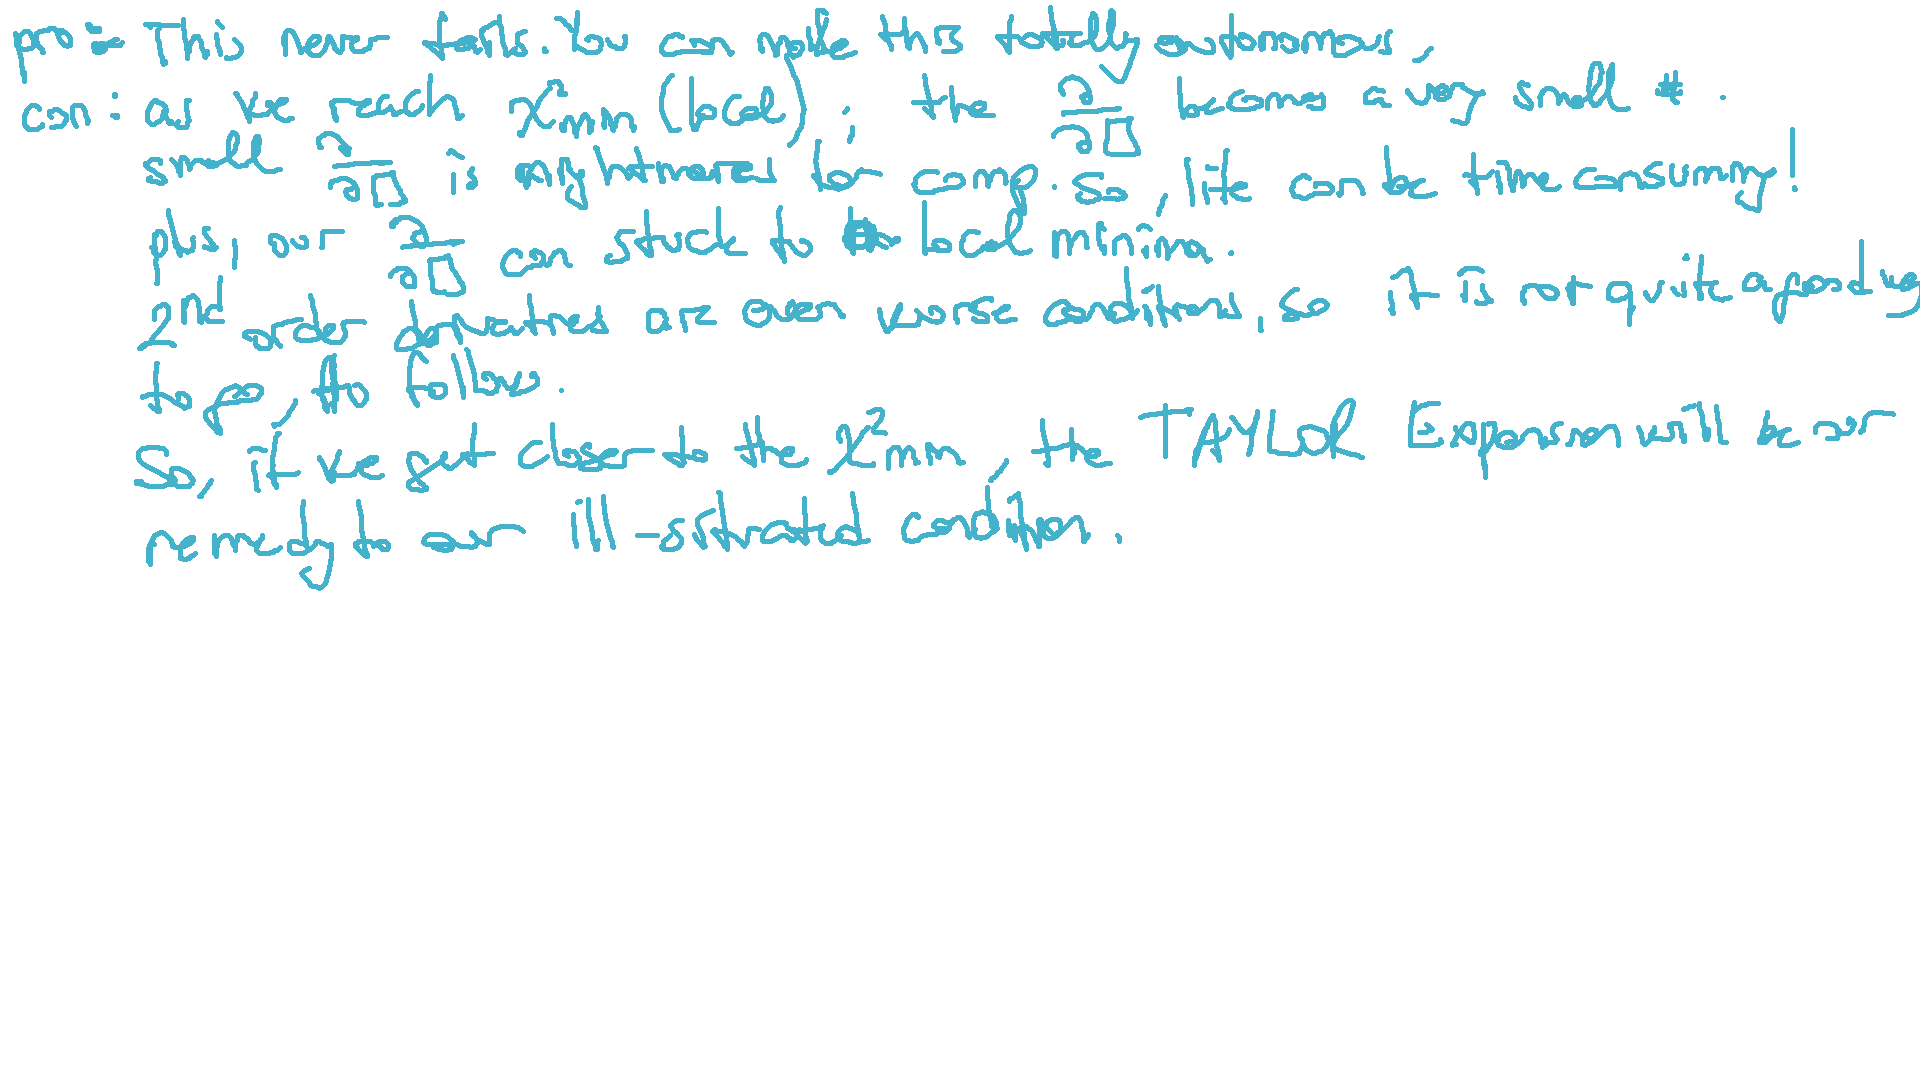 pro := This never fails. You can make this totally autonomous,
con : as we reach χ²min (local), the ∂/∂□ becomes a very small #.
small ∂/∂□ is nightmares for comp. So, life can be time consuming!
plus, our ∂/∂□ can stuck to local minima.
2nd order derivatives are even worse conditions, so it is not quite a good way
to go, to follow.
So, if we get closer to the χ²min, the TAYLOR Expansion will be our
remedy to our ill-situated condition.